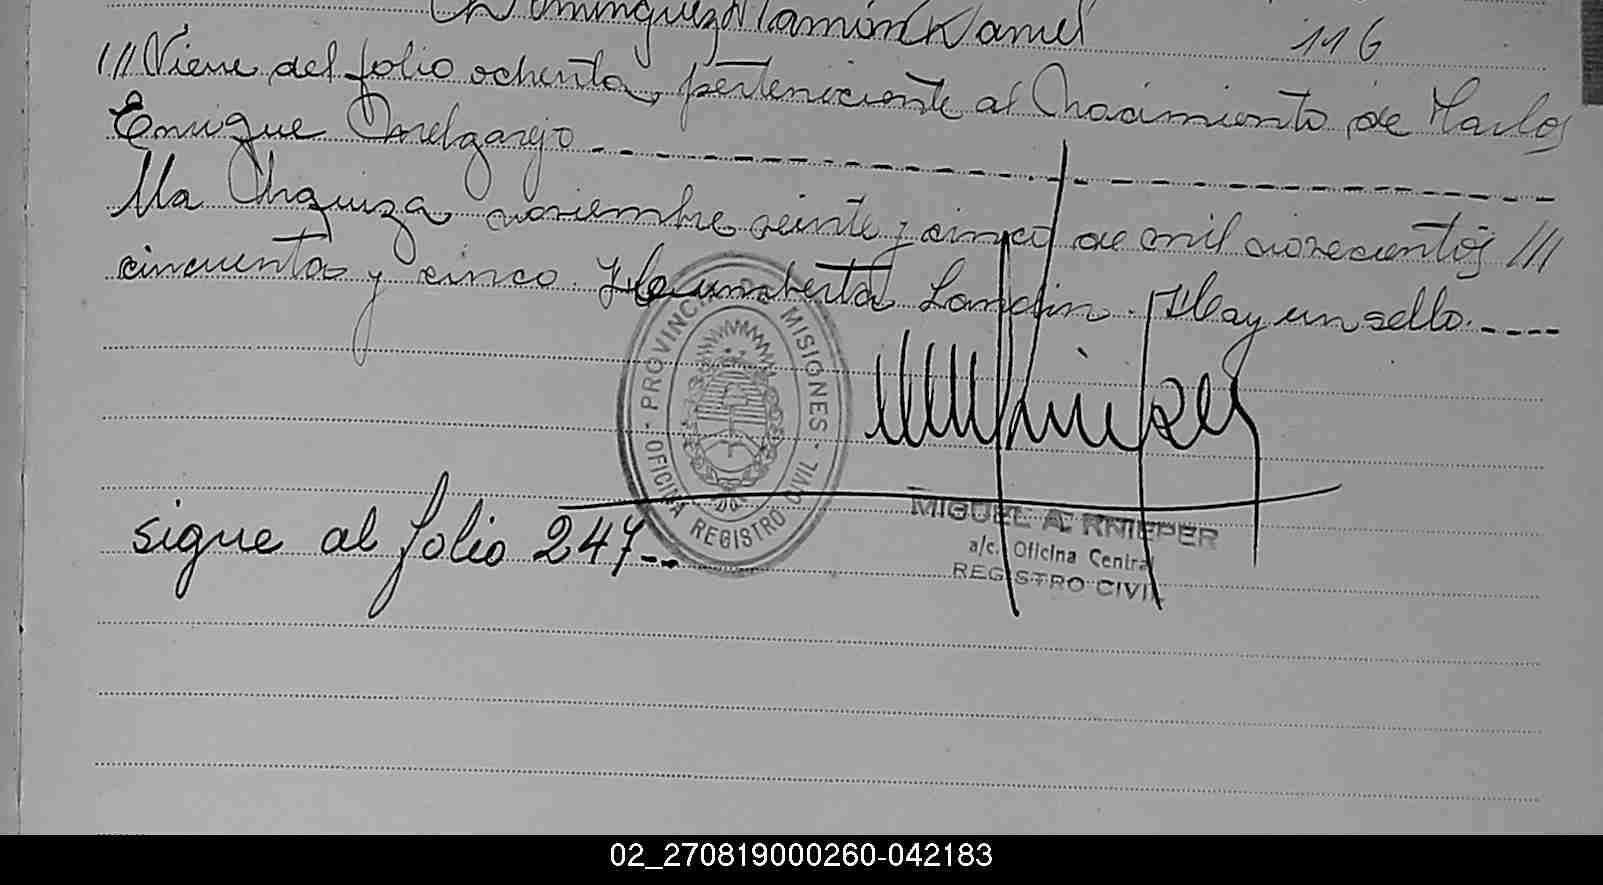 Dominguez Ramón Daniel 116
///Viene del folio ochenta, perteneciente al Nacimiento de Carlos
Enrique Melgarejo
noviembre veinte y cinco de mil novecientos ///
cincuenta y cinco. Humberta Landin. Hay un sello.----
PROVINCIA DE MISIONES
OFICINA REGISTRO CIVIL
sigue al folio 247--
MIGUEL A. KNIEPER
a/c. Oficina Central
REGISTRO CIVIL
02_270819000260-042183